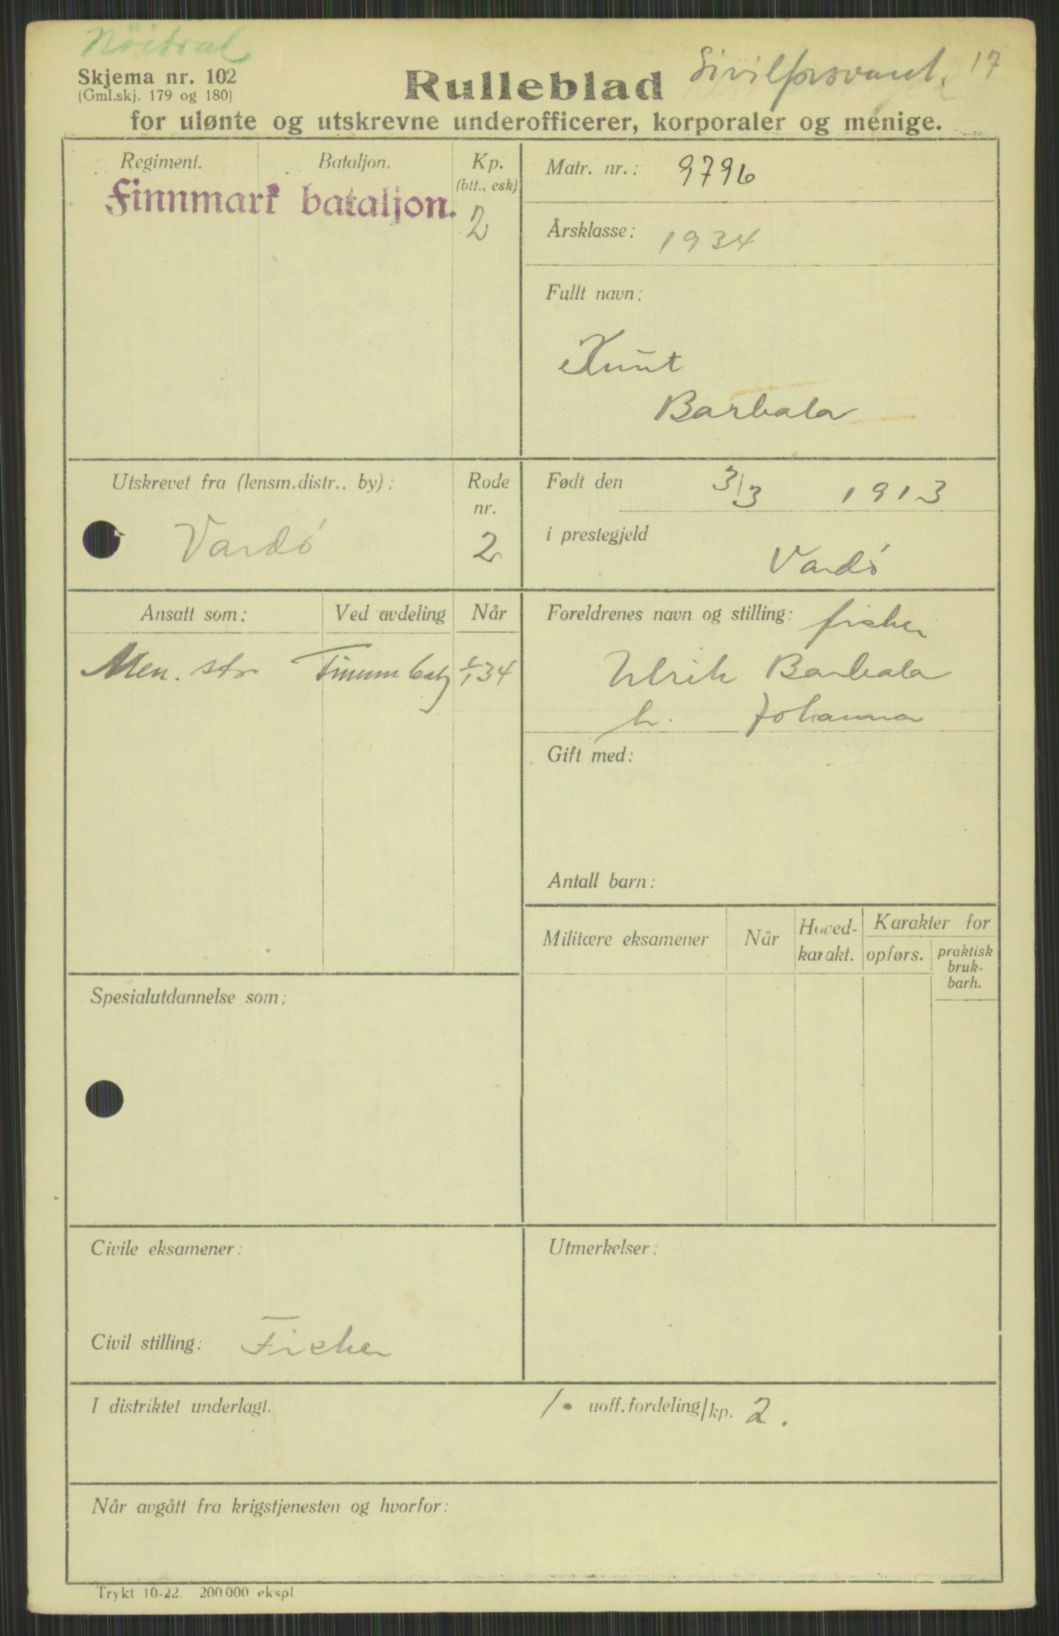 Nöitral
Skjema nr. 102
(Gml.skj. 179 og 180)
Rulleblad
Sivilforsvaret. 17
for ulønte og utskrevne underofficerer, korporaler og menige.
Regiment. Bataljon. Kp.
(btt., esk)
Finnmark bataljon. 2
Matr. nr.: 9796
Årsklasse: 1934
Fullt navn:
Knut
Barbala
Utskrevet fra (lensm.distr.. by): Rode
nr.
Vardö 2
Født den 3/3 1913
i prestegjeld
Vardö
Ansatt som: Ved avdeling Når
Men. str Finnm batj 1/1 34
Foreldrenes navn og stilling: fisker
Ulrik Barbala
h. Johanna
Gift med:
Antall barn:
Militære eksamener Når Hoved-
karakt. Karakter for
opførs. praktisk
bruk-
barh.
Spesialutdannelse som:
Civile eksamener:
Civil stilling: Fisker
Utmerkelser:
I distriktet underlagt. 1. uoff.fordeling/kp. 2.
Når avgått fra krigstjenesten og hvorfor:
Trykt 10-22. 200 000 ekspl